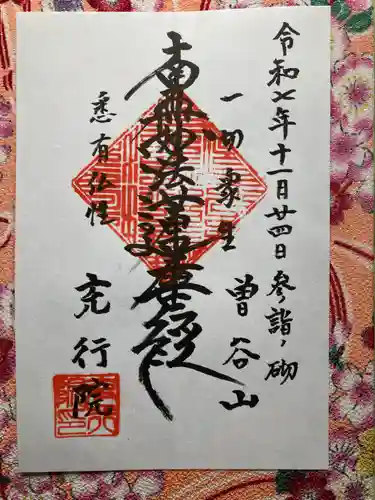 令和七年十一月廿四日参詣ノ砌
一切衆生
曽谷山
南無妙法蓮華経
悉有仏性
玄行院